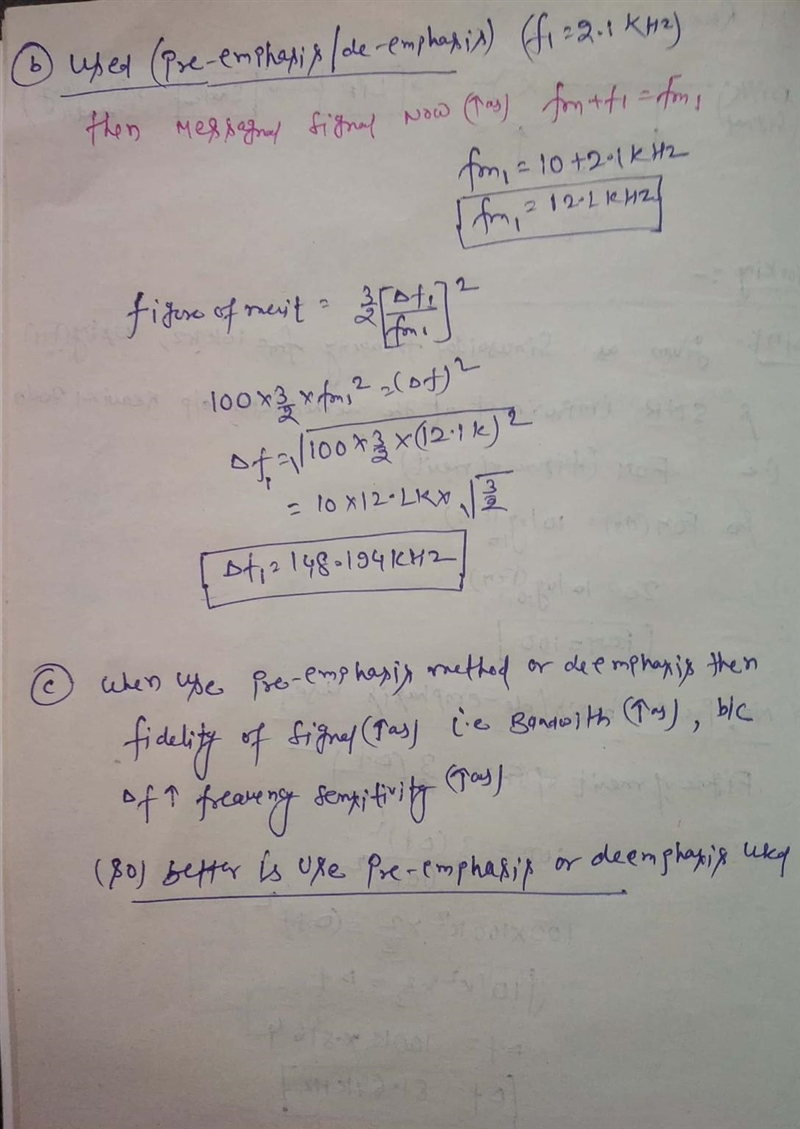 (b) Used (Pre-emphasis/de-emphasis) (f₁=2.1 KHz)
then Messagnal Signal Now (↑as) fm+f₁=fm₁
fm₁ = 10+2.1KHz
fm₁ = 12.1KHz
figure of merit = 3/2 [Δf₁/fm₁]²
100×3/2×fm₁² = (Δf)²
Δf₁ = √100×3/2×(12.1K)²
= 10×12.1K× √3/2
Δf₁ = 148.194KHz
(c) when use Pre-emphasis method or deemphasis then
fidelity of Signal (↑as) i.e Bandwith (↑as), b/c
Δf↑ freavency sensitivity (↑as)
(so) better is Use Pre-emphasis or deemphasis Used